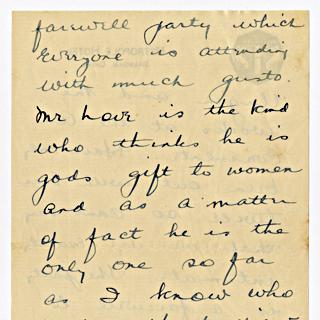 farewell party which
everyone is attending
with much gusto.
Mr Love is the kind
who thinks he is
gods gift to women
and as a matter
of fact he is the
only one so far
as I know who